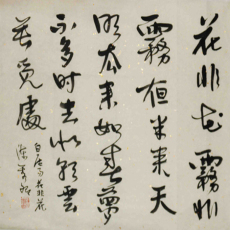 花非花霧非
霧夜半来天
明去来如春夢
不多时去似朝雲
無覓處
白居易花非花